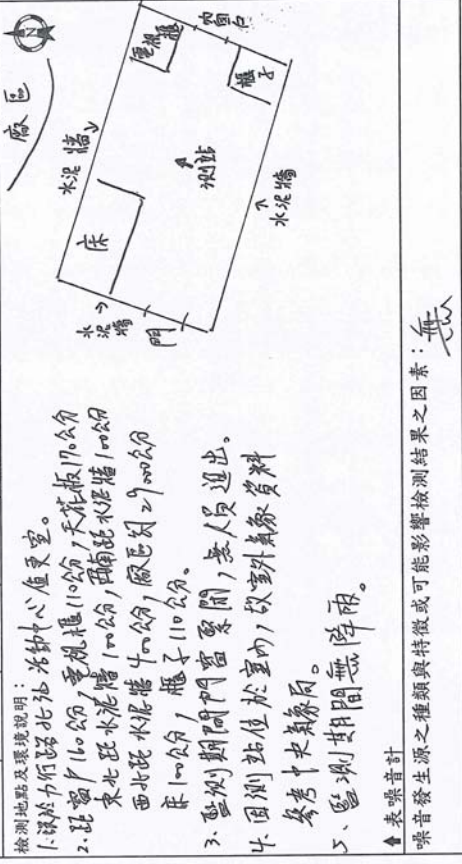 檢測地點及環境說明：
1.
2. 距窗戶110公分，電視櫃110公分，天花板170公分
東北距水泥牆100公分，西南距水泥牆100公分
西北距水泥牆400公分，廠區約2900公分
床100公分，櫃子110公分。
3. 監測期間門窗緊閉，無人員進出。
4. 因測站位於室內，故室外氣象資料
參考中央氣象局。
5、監測期間無降雨。
N
廠區
水泥牆
電視櫃
窗戶
床
櫃子
測站
水泥牆
門
水泥牆
表噪音計
噪音發生源之種類與特徵或可能影響檢測結果之因素：無